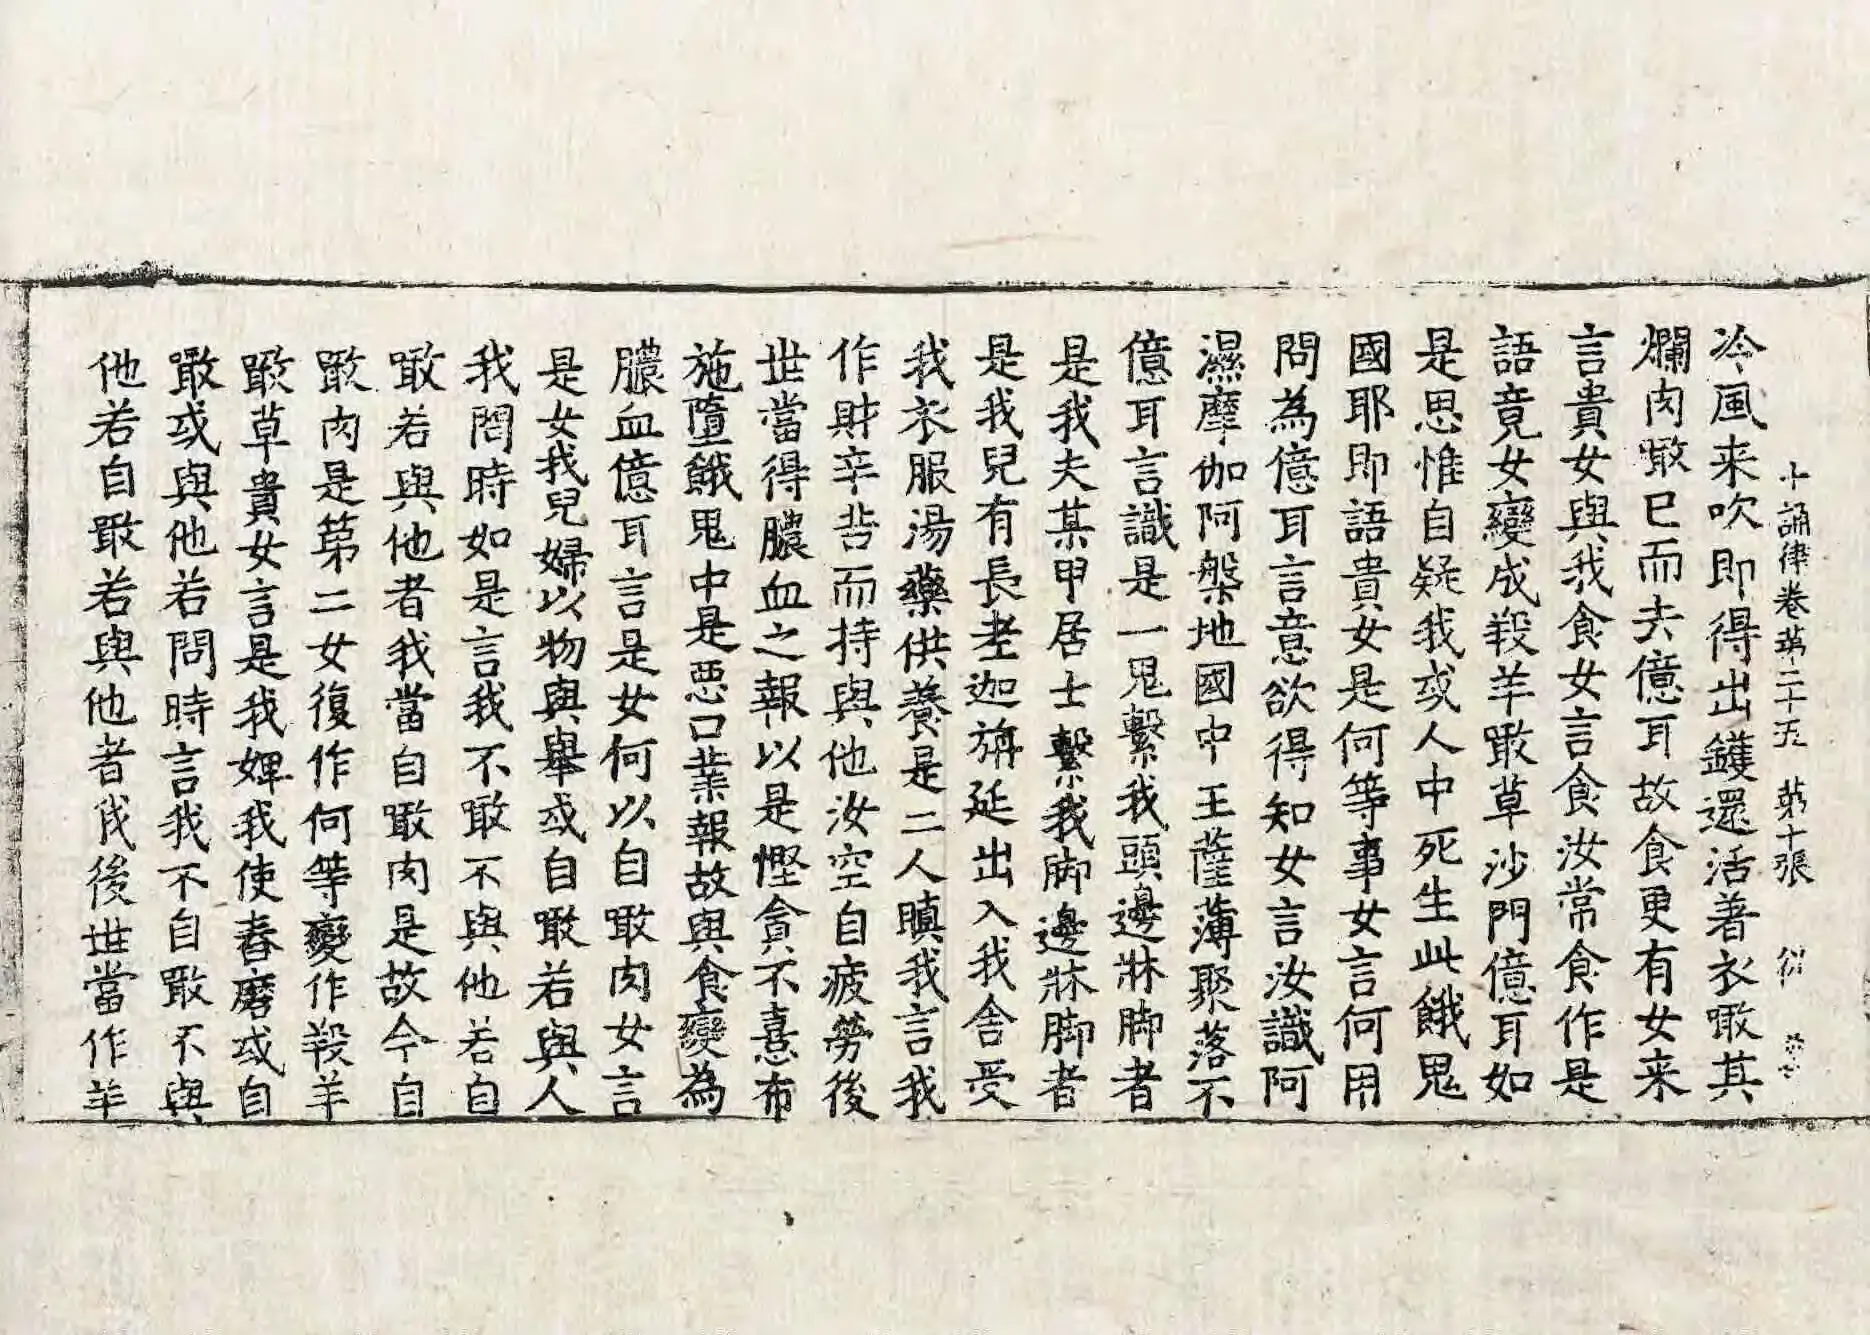 十誦律卷第二十五 第十張 衍
冷風来吹即得出鑊還活著衣噉其
爛肉噉已而去億耳故食更有女来
言貴女與我食女言食汝常食作是
語竟女變成羖羊噉草沙門億耳如
是思惟自疑我或人中死生此餓鬼
國耶即語貴女是何等事女言何用
問為億耳言意欲得知女言汝識阿
濕摩伽阿槃地國中王薩薄聚落不
億耳言識是一鬼繫我頭邊牀脚者
是我夫某甲居士繫我脚邊牀脚者
是我兒有長老迦旃延出入我舍受
我衣服湯藥供養是二人瞋我言我
作財辛苦而持與他汝空自疲勞後
世當得膿血之報以是慳貪不憙布
施墮餓鬼中是惡口業報故與食變為
膿血億耳言是女何以自噉肉女言
是女我兒婦以物與舉或自噉若與人
我問時如是言我不噉不與他若自
噉若與他者我當自噉肉是故今自
噉肉是第二女復作何等變作羖羊
噉草貴女言是我婢我使舂磨或自
噉或與他若問時言我不自噉不與
他若自噉若與他者我後世當作羊